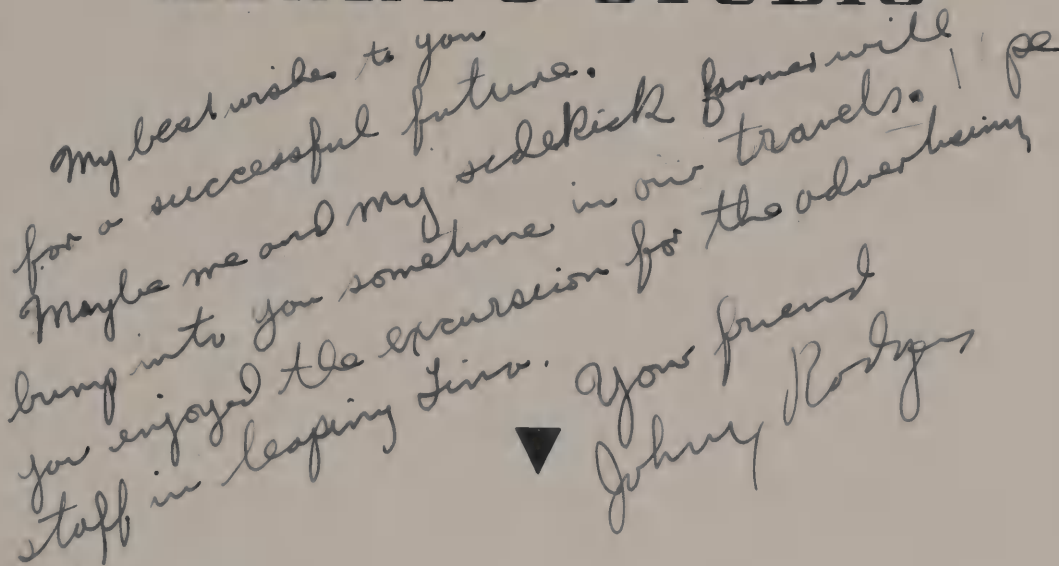 My best wishes to you
for a successful future.
Maybe me and my sidekick farmer will
bump into you sometime in our travels. I
you enjoyed the excursion for the advertising
staff in leaping Lina.
Your friend
Johnny Rodgers